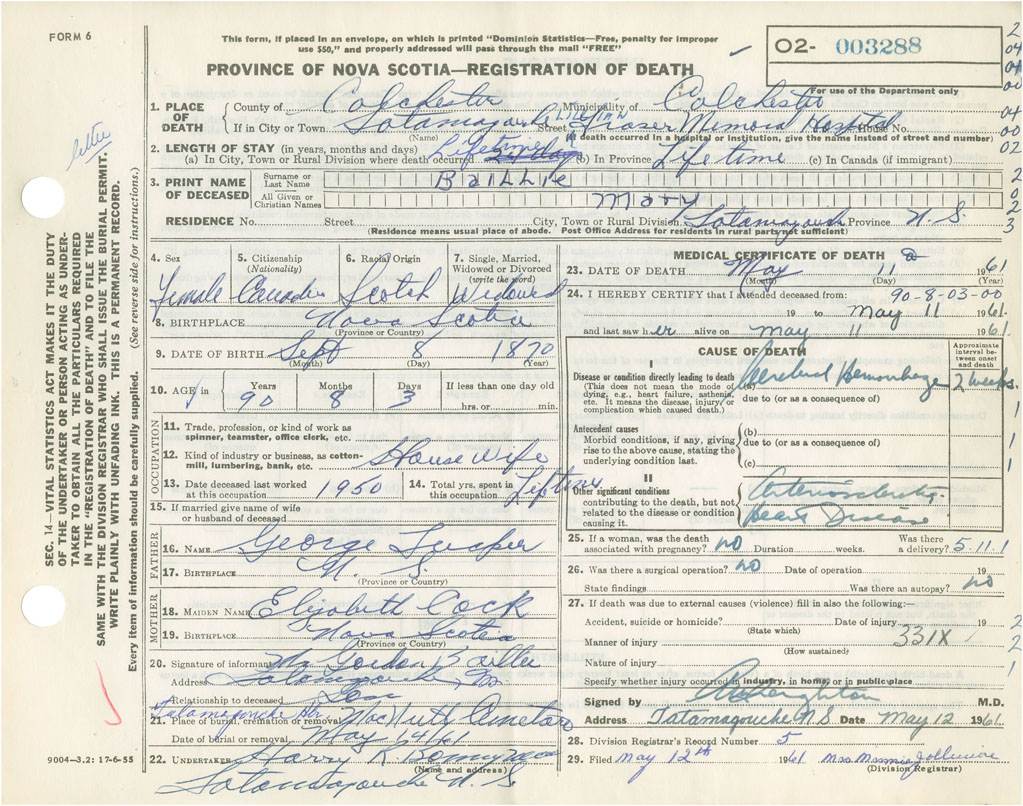 FORM 6
This form, if placed in an envelope, on which is printed "Dominion Statistics—Free, penalty for improper
use $50," and properly addressed will pass through the mail "FREE"
02- 003288
For use of the Department only
PROVINCE OF NOVA SCOTIA—REGISTRATION OF DEATH
1. PLACE OF DEATH
County of Colchester Municipality of Colchester
If in City or Town Tatamagouche Street Lillian Fraser Memorial Hospital House No.
(Name) (If death occurred in a hospital or institution, give the name instead of street and number)
2. LENGTH OF STAY (in years, months and days)
(a) In City, Town or Rural Division where death occurred Lifetime (b) In Province Life time (c) In Canada (if immigrant)
3. PRINT NAME OF DECEASED
Surname or Last Name Baillie
All Given or Christian Names Mary
RESIDENCE No. Street City, Town or Rural Division Tatamagouche Province N. S.
(Residence means usual place of abode. Post Office Address for residents in rural parts not sufficient)
4. Sex Female
5. Citizenship (Nationality) Canadian
6. Racial Origin Scotch
7. Single, Married, Widowed or Divorced (write the word) Widowed
8. BIRTHPLACE Nova Scotia
(Province or Country)
9. DATE OF BIRTH Sept 8 1870
(Month) (Day) (Year)
10. AGE in Years Months Days If less than one day old
90 8 3 hrs. or min.
OCCUPATION
11. Trade, profession, or kind of work as spinner, teamster, office clerk, etc.
12. Kind of industry or business, as cotton-mill, lumbering, bank, etc. House Wife
13. Date deceased last worked at this occupation 1950
14. Total yrs. spent in this occupation Lifetime
15. If married give name of wife or husband of deceased
FATHER
16. NAME George
17. BIRTHPLACE N. S.
(Province or Country)
MOTHER
18. MAIDEN NAME Elizabeth Cock
19. BIRTHPLACE Nova Scotia
(Province or Country)
20. Signature of informant Mr Gordon Baillie
Address Tatamagouche, N.S.
Relationship to deceased Son
21. Place of burial, cremation or removal Tatamagouche
Date of burial or removal May 14/61
22. UNDERTAKER Harry R.
(Name and address)
Tatamagouche N. S.
9004—3.2: 17-6-55
MEDICAL CERTIFICATE OF DEATH
23. DATE OF DEATH May 11 1961
(Month) (Day) (Year)
24. I HEREBY CERTIFY that I attended deceased from: 90-8-03-00
19 to May 11 1961
and last saw her alive on May 11 1961
CAUSE OF DEATH
Approximate interval between onset and death
I
Disease or condition directly leading to death
(This does not mean the mode of dying, e.g., heart failure, asthenia, etc. It means the disease, injury or complication which caused death.)
(a) Cerebral Hemorrhage 2 weeks
due to (or as a consequence of)
Antecedent causes
Morbid conditions, if any, giving rise to the above cause, stating the underlying condition last.
(b)
due to (or as a consequence of)
(c)
II
Other significant conditions
contributing to the death, but not related to the disease or condition causing it.
Arteriosclerotic
Heart Disease
25. If a woman, was the death associated with pregnancy? NO Duration weeks. Was there a delivery? 5.11.1
26. Was there a surgical operation? NO Date of operation 19
State findings Was there an autopsy? NO
27. If death was due to external causes (violence) fill in also the following:—
Accident, suicide or homicide? Date of injury 19
(State which)
Manner of injury 331X
(How sustained)
Nature of injury
Specify whether injury occurred in industry, in home, or in public place
Signed by M.D.
Address Tatamagouche N S Date May 12 1961
28. Division Registrar's Record Number 5
29. Filed May 12th 1961 Mrs.
(Division Registrar)
SEC. 14—VITAL STATISTICS ACT MAKES IT THE DUTY
OF THE UNDERTAKER OR PERSON ACTING AS UNDER-
TAKER TO OBTAIN ALL THE PARTICULARS REQUIRED
IN THE "REGISTRATION OF DEATH" AND TO FILE THE
SAME WITH THE DIVISION REGISTRAR WHO SHALL ISSUE THE BURIAL PERMIT.
WRITE PLAINLY WITH UNFADING INK. THIS IS A PERMANENT RECORD.
Every item of information should be carefully supplied. (See reverse side for instructions.)